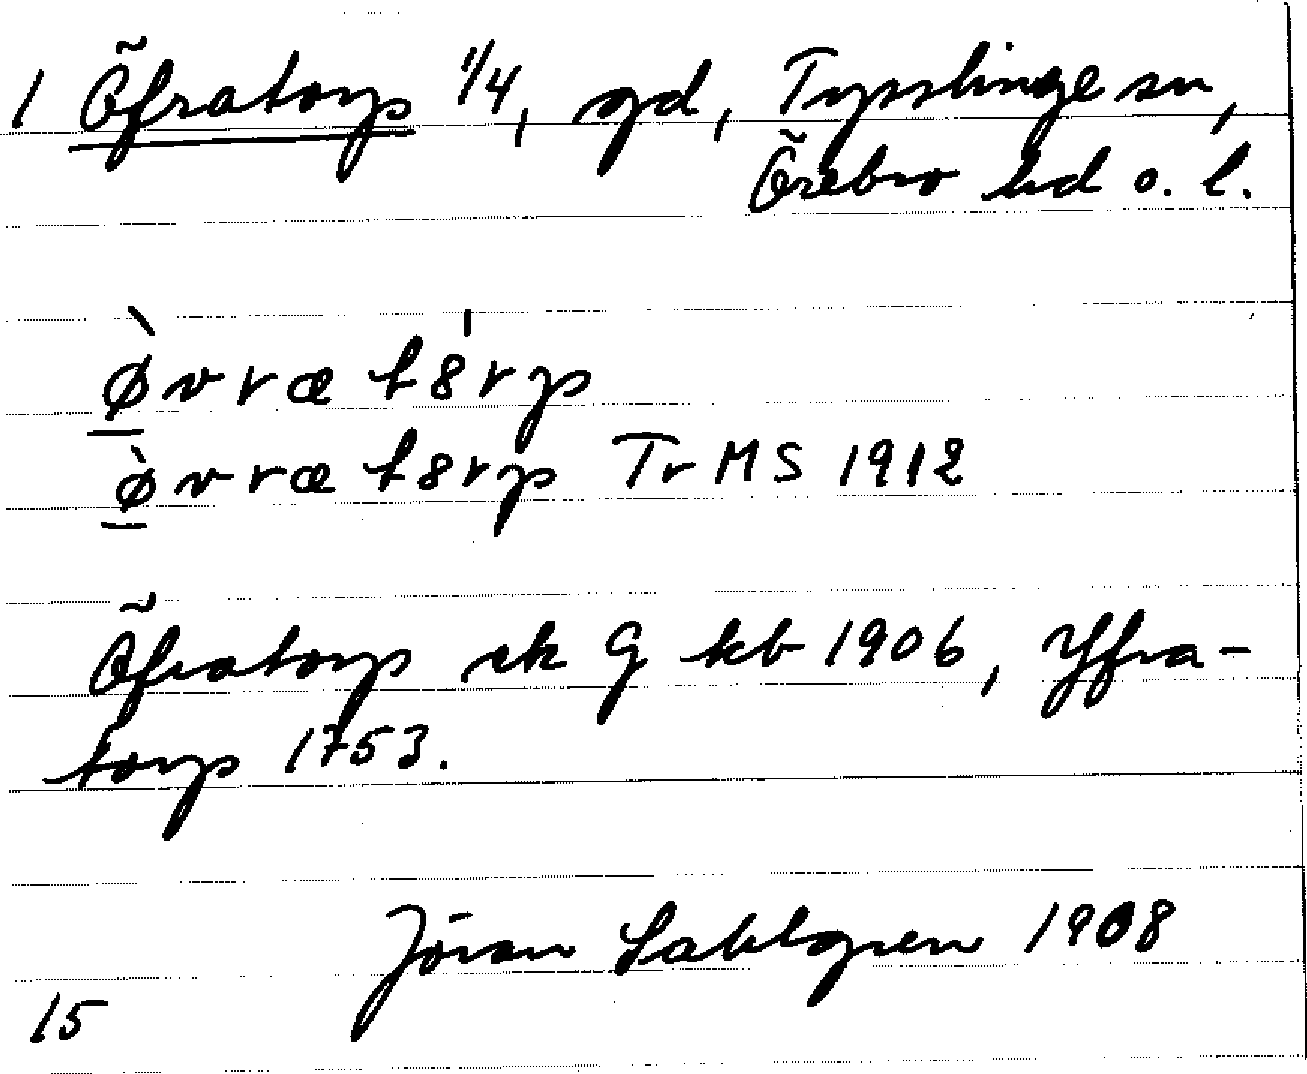 1 Öfratorp 1/4, gd, Tysslinge sn,
Örebro hd o. l.
ø̀vræ t8́rp
ø̀vræ t8rp Tr MS 1912
Öfratorp ek G kb 1906, Yfra-
torp 1753.
Jöran Sahlgren 1908
15